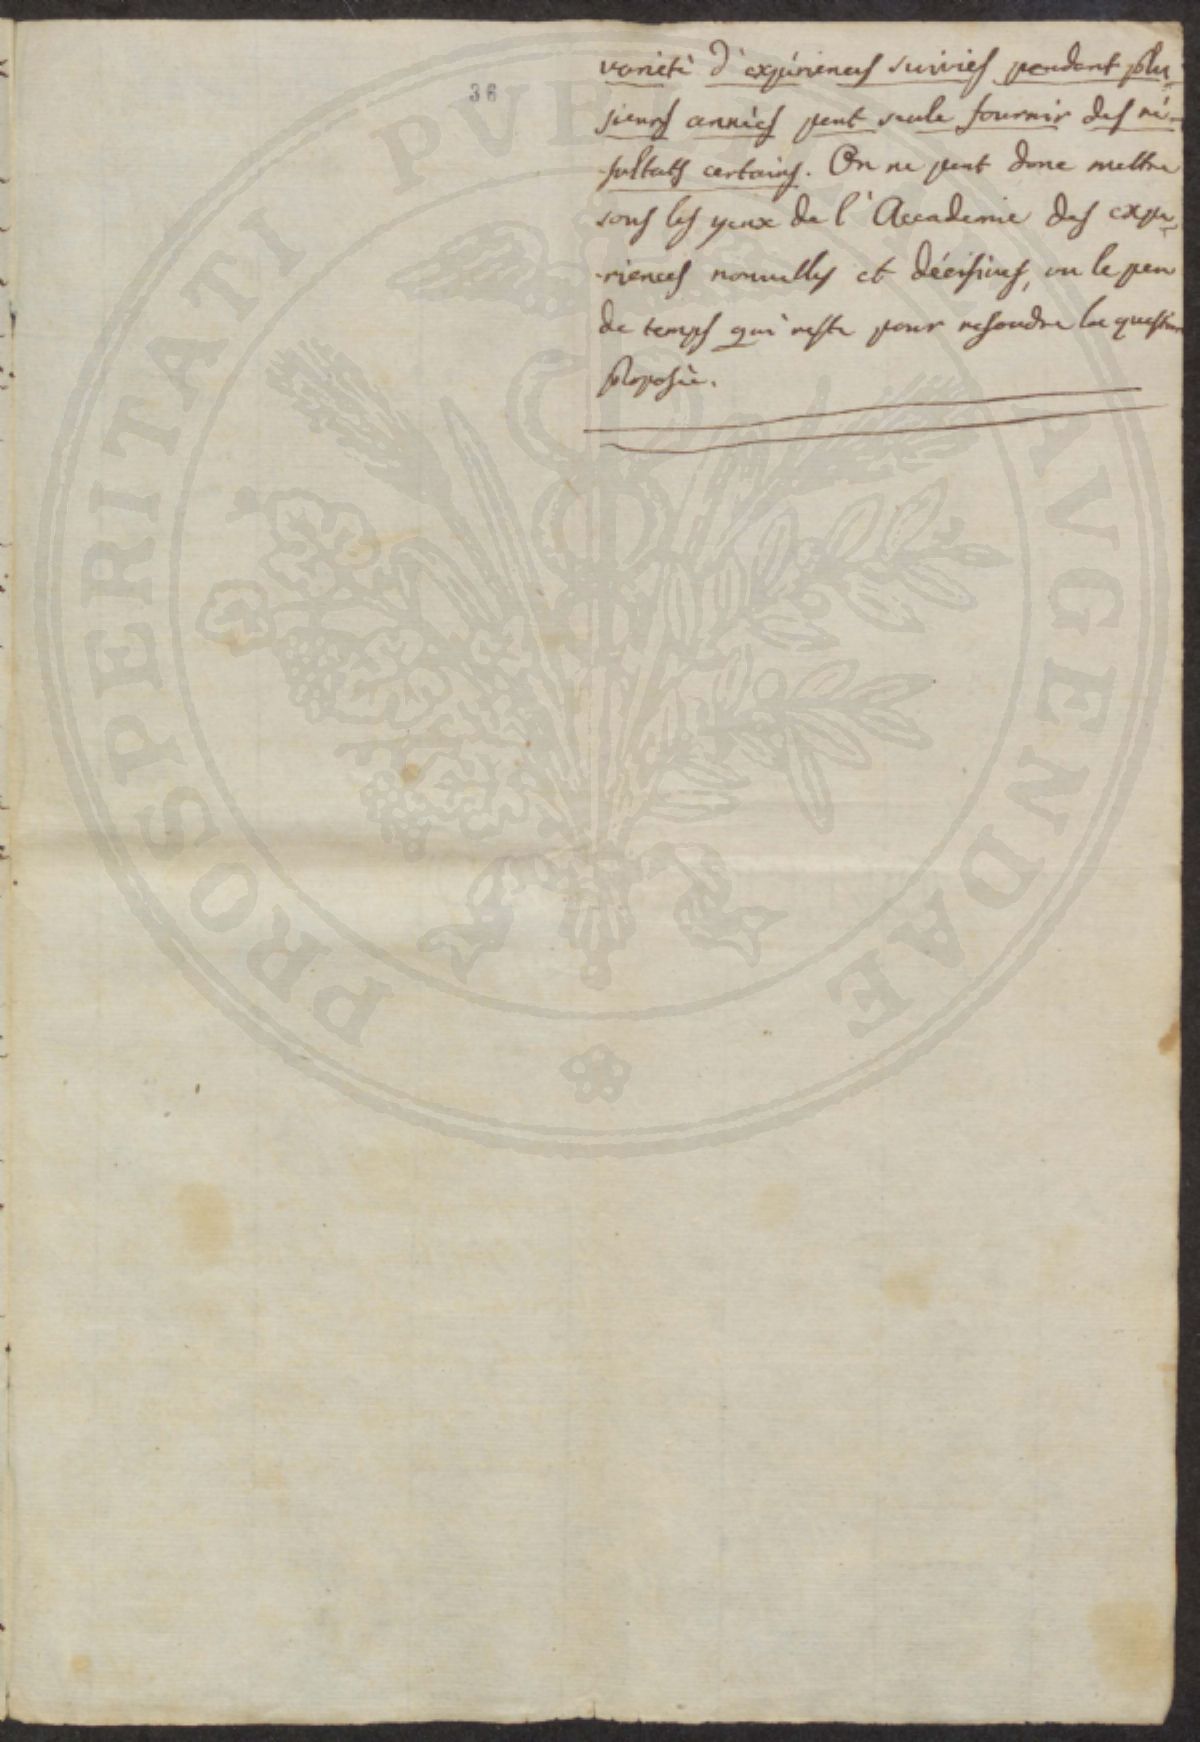 36
varieté d'expériences suivies pendant plu-
sieurs années peut seule fournir des ré-
sultats certains. On ne peut donc mettre
sous les yeux de l'Accademie des expe-
riences nouvelles et décisives, vu le peu
de temps qui reste pour resoudre la question
proposée.
PROSPERITATI PVBLICAE AVGENDAE